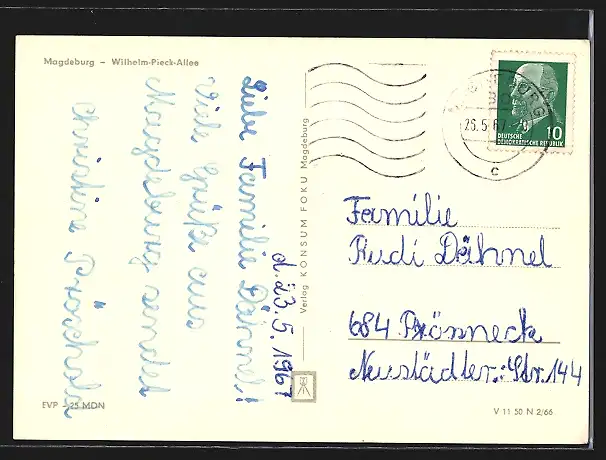 Magdeburg – Wilhelm-Pieck-Allee
d. 23.5.1967
Liebe Familie Dähnel!
Viele Grüße aus
Magdeburg sendet
Verlag KONSUM FOKU Magdeburg
EVP – 25 MDN
26.5.67
c
10
DEUTSCHE
DEMOKRATISCHE REPUBLIK
Familie
Rudi Dähnel
684 Pößneck
Neustädter-Str. 144
V 11 50 N 2/66